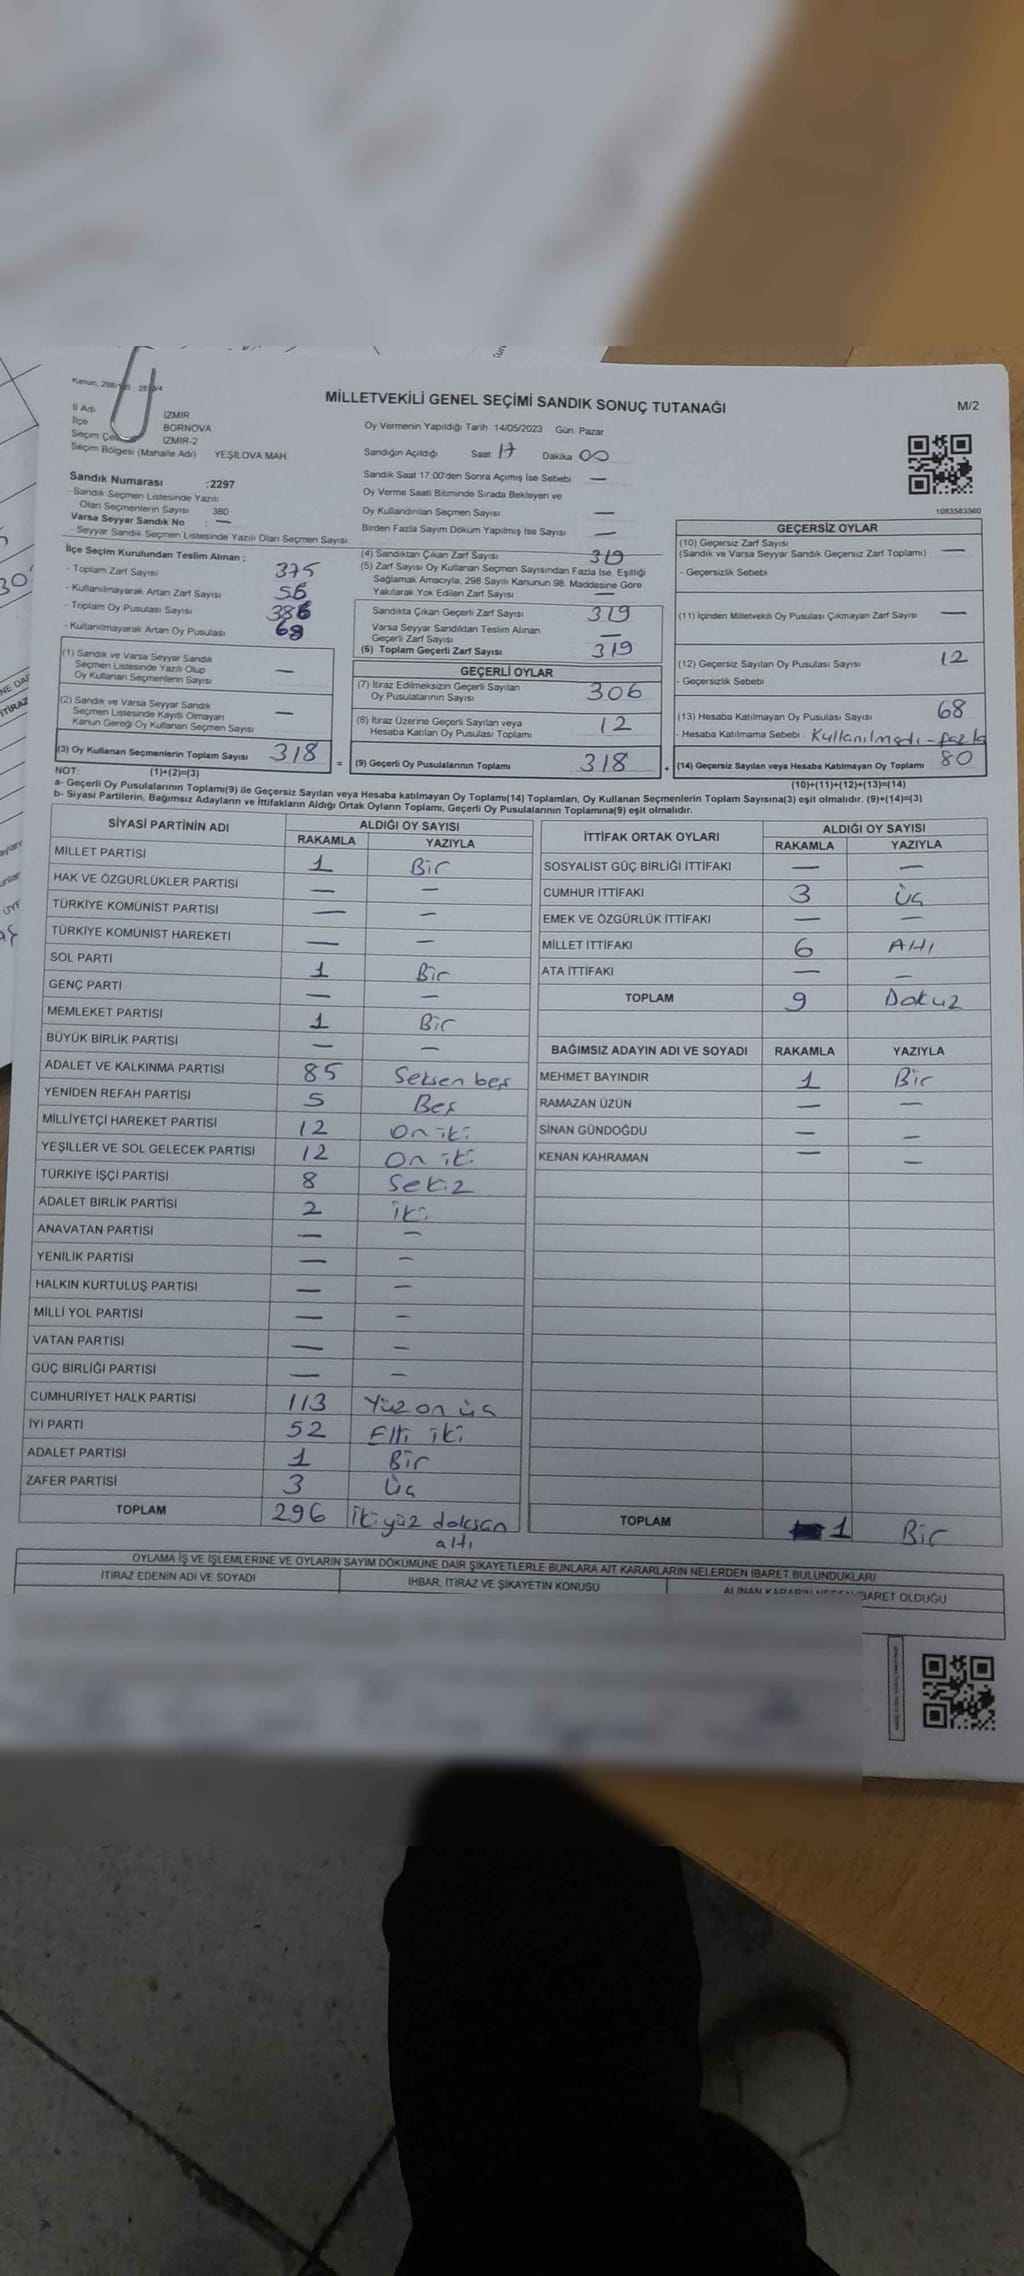 Kanun, 298/105 , 2839/4
MİLLETVEKİLİ GENEL SEÇİMİ SANDIK SONUÇ TUTANAĞI
M/2
İl Adı İZMİR
İlçe BORNOVA
Seçim Çe İZMİR-2
Seçim Bölgesi (Mahalle Adı) YEŞİLOVA MAH.
Oy Vermenin Yapıldığı Tarih 14/05/2023 Gün: Pazar
Sandığın Açıldığı Saat 17 Dakika 00
Sandık Numarası :2297
- Sandık Seçmen Listesinde Yazılı
Olan Seçmenlerin Sayısı 380
Varsa Seyyar Sandık No : —
- Seyyar Sandık Seçmen Listesinde Yazılı Olan Seçmen Sayısı
Sandık Saat 17:00'den Sonra Açımış İse Sebebi —
Oy Verme Saati Bitiminde Sırada Bekleyen ve
Oy Kullandırılan Seçmen Sayısı —
Birden Fazla Sayım Döküm Yapılmış İse Sayısı —
1083583560
İlçe Seçim Kurulundan Teslim Alınan ;
- Toplam Zarf Sayısı 375
- Kullanılmayarak Artan Zarf Sayısı 56
- Toplam Oy Pusulası Sayısı 386
- Kullanılmayarak Artan Oy Pusulası 68
(1) Sandık ve Varsa Seyyar Sandık
Seçmen Listesinde Yazılı Olup
Oy Kullanan Seçmenlerin Sayısı —
(2) Sandık ve Varsa Seyyar Sandık
Seçmen Listesinde Kayıtlı Olmayan
Kanun Gereği Oy Kullanan Seçmen Sayısı —
(3) Oy Kullanan Seçmenlerin Toplam Sayısı 318
(4) Sandıktan Çıkan Zarf Sayısı 319
(5) Zarf Sayısı Oy Kullanan Seçmen Sayısından Fazla İse, Eşitliği
Sağlamak Amacıyla, 298 Sayılı Kanunun 98. Maddesine Göre
Yakılarak Yok Edilen Zarf Sayısı —
Sandıkta Çıkan Geçerli Zarf Sayısı 319
Varsa Seyyar Sandıktan Teslim Alınan
Geçerli Zarf Sayısı —
(6) Toplam Geçerli Zarf Sayısı 319
GEÇERLİ OYLAR
(7) İtiraz Edilmeksizin Geçerli Sayılan
Oy Pusulalarının Sayısı 306
(8) İtiraz Üzerine Geçerli Sayılan veya
Hesaba Katılan Oy Pusulası Toplamı 12
= (9) Geçerli Oy Pusulalarının Toplamı 318
GEÇERSİZ OYLAR
(10) Geçersiz Zarf Sayısı
(Sandık ve Varsa Seyyar Sandık Geçersiz Zarf Toplamı) —
- Geçersizlik Sebebi
(11) İçinden Milletvekili Oy Pusulası Çıkmayan Zarf Sayısı —
(12) Geçersiz Sayılan Oy Pusulası Sayısı 12
- Geçersizlik Sebebi
(13) Hesaba Katılmayan Oy Pusulası Sayısı 68
- Hesaba Katılmama Sebebi Kullanılmadı - fazla
+ (14) Geçersiz Sayılan veya Hesaba Katılmayan Oy Toplamı 80
NOT: (1)+(2)=(3)
(10)+(11)+(12)+(13)=(14)
a- Geçerli Oy Pusulalarının Toplamı(9) ile Geçersiz Sayılan veya Hesaba katılmayan Oy Toplamı(14) Toplamları, Oy Kullanan Seçmenlerin Toplam Sayısına(3) eşit olmalıdır. (9)+(14)=(3)
b- Siyasi Partilerin, Bağımsız Adayların ve İttifakların Aldığı Ortak Oyların Toplamı, Geçerli Oy Pusulalarının Toplamına(9) eşit olmalıdır.
SİYASİ PARTİNİN ADI ALDIĞI OY SAYISI
RAKAMLA YAZIYLA
MİLLET PARTİSİ 1 Bir
HAK VE ÖZGÜRLÜKLER PARTİSİ — —
TÜRKİYE KOMÜNİST PARTİSİ — —
TÜRKİYE KOMÜNİST HAREKETİ — —
SOL PARTİ 1 Bir
GENÇ PARTİ — —
MEMLEKET PARTİSİ 1 Bir
BÜYÜK BİRLİK PARTİSİ — —
ADALET VE KALKINMA PARTİSİ 85 Seksen beş
YENİDEN REFAH PARTİSİ 5 Beş
MİLLİYETÇİ HAREKET PARTİSİ 12 On iki
YEŞİLLER VE SOL GELECEK PARTİSİ 12 On iki
TÜRKİYE İŞÇİ PARTİSİ 8 Sekiz
ADALET BİRLİK PARTİSİ 2 iki
ANAVATAN PARTİSİ — —
YENİLİK PARTİSİ — —
HALKIN KURTULUŞ PARTİSİ — —
MİLLİ YOL PARTİSİ — —
VATAN PARTİSİ — —
GÜÇ BİRLİĞİ PARTİSİ — —
CUMHURİYET HALK PARTİSİ 113 Yüz on üç
İYİ PARTİ 52 Elli iki
ADALET PARTİSİ 1 Bir
ZAFER PARTİSİ 3 Üç
TOPLAM 296 iki yüz doksan
altı
İTTİFAK ORTAK OYLARI ALDIĞI OY SAYISI
RAKAMLA YAZIYLA
SOSYALİST GÜÇ BİRLİĞİ İTTİFAKI — —
CUMHUR İTTİFAKI 3 Üç
EMEK VE ÖZGÜRLÜK İTTİFAKI — —
MİLLET İTTİFAKI 6 Altı
ATA İTTİFAKI — —
TOPLAM 9 Dokuz
BAĞIMSIZ ADAYIN ADI VE SOYADI RAKAMLA YAZIYLA
MEHMET BAYINDIR 1 Bir
RAMAZAN ÜZÜN — —
SİNAN GÜNDOĞDU — —
KENAN KAHRAMAN — —
TOPLAM 1 Bir
OYLAMA İŞ VE İŞLEMLERİNE VE OYLARIN SAYIM DÖKÜMÜNE DAİR ŞİKAYETLERLE BUNLARA AİT KARARLARIN NELERDEN İBARET BULUNDUKLARI
İTİRAZ EDENİN ADI VE SOYADI
İHBAR, İTİRAZ VE ŞİKAYETİN KONUSU
ALINAN KARARIN NEDEN İBARET OLDUĞU